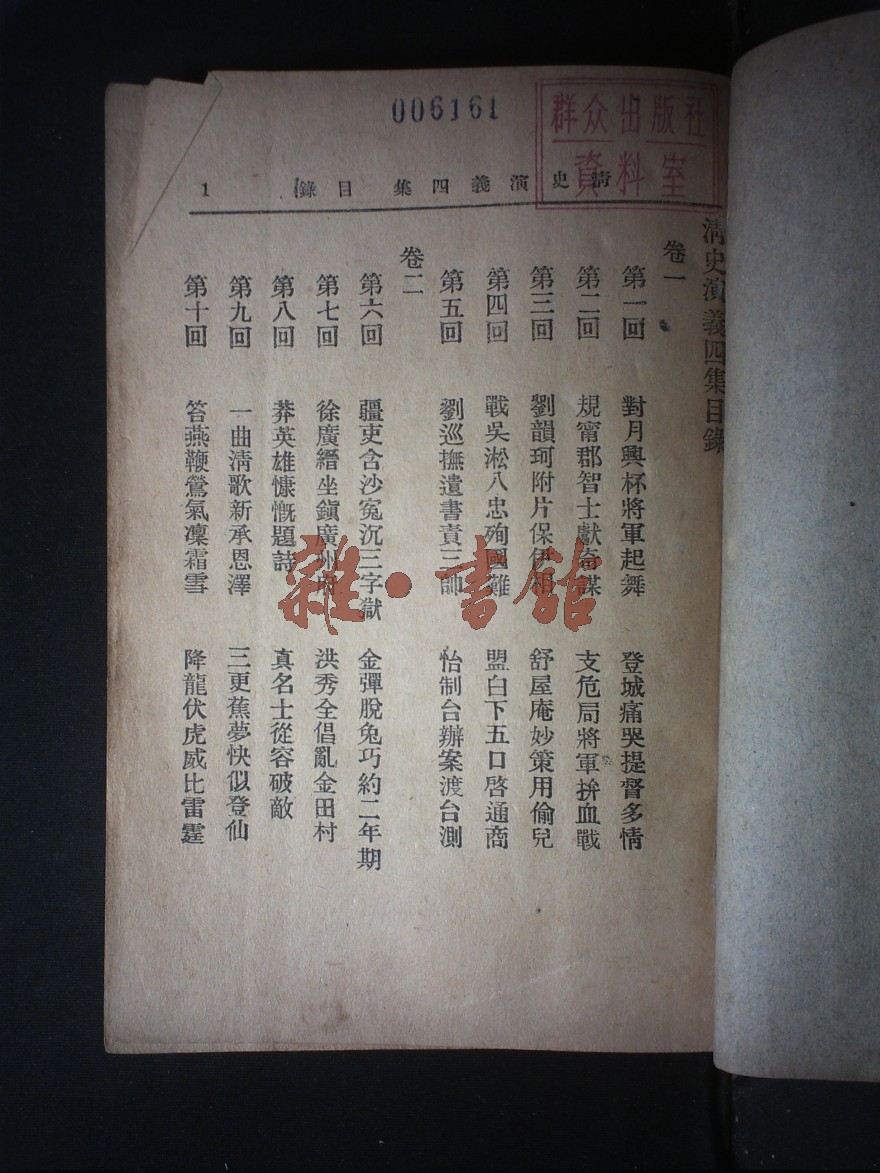 006161
群众出版社
資料室
清史演義四集 目錄 1
清史演義四集目錄
卷一
第一回 對月興杯將軍起舞 登城痛哭提督多情
第二回 規甯郡智士獻奇謀 支危局將軍拚血戰
第三回 劉韻珂附片保伊相 舒屋庵妙策用偷兒
第四回 戰吳淞八忠殉國難 盟白下五口啓通商
第五回 劉巡撫遺書責三帥 怡制台辦案渡台測
卷二
第六回 疆吏含沙冤沉三字獄 金彈脫兔巧約二年期
第七回 徐廣縉坐鎭廣州府 洪秀全倡亂金田村
第八回 莽英雄慷慨題詩 真名士從容破敵
第九回 一曲淸歌新承恩澤 三更蕉夢快似登仙
第十回 笞燕鞭鶯氣凜霜雪 降龍伏虎威比雷霆
雜·書館